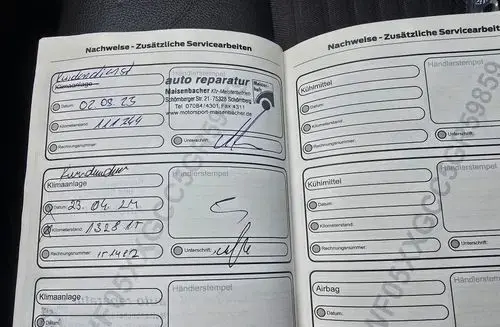 Nachweise - Zusätzliche Servicearbeiten
Kundendienst
Klimaanlage
Datum: 02.08.23
Kilometerstand: 111244
Rechnungsnummer:
Händlerstempel
auto reparatur
Maisenbacher Kfz-Meisterbetrieb
Schömberger Str. 21 · 75328 Schömberg
Tel 07084/4301, Fax 4311
www.motorsport-maisenbacher.de
Unterschrift:
Klimaanlage
Datum: 23.04.
Kilometerstand:
Rechnungsnummer:
Händlerstempel
Unterschrift:
Klimaanlage
Datum:
Händlerstempel
Nachweise - Zusätzliche Servicearbeiten
Kühlmittel
Datum:
Kilometerstand:
Rechnungsnummer:
Händlerstempel
Kühlmittel
Datum:
Kilometerstand:
Rechnungsnummer:
Händlerstempel
Unterschrift:
Airbag
Datum:
Händlerstempel